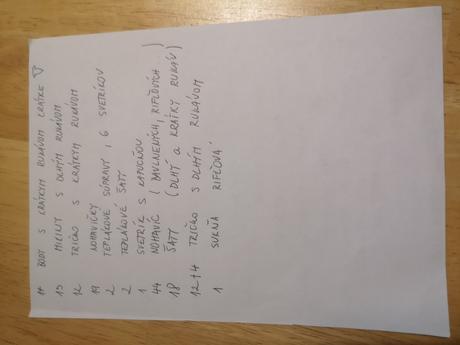 11 BODY S KRÁTKYM RUKÁVOM KRÁTKE
15 MIKINY S DLHÝM RUKÁVOM
12 TRIČKO S KRÁTKYM RUKÁVOM
19 NOHAVIČKY
2 TEPLÁKOVÉ SÚPRAVY, 6 SVETRÍKOV
2 TEPLÁKOVÉ ŠATY
1 SVETRÍK S KAPUCŇOU
44 NOHAVÍC (BAVLNENÝCH, RIFĽOVÝCH)
18 ŠATY (DLHÝ a KRÁTKY RUKÁV)
12+4 TRIČKO S DLHÝM RUKÁVOM
1 SUKŇA RIFĽOVÁ